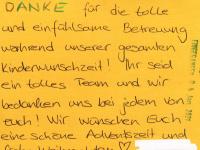 DANKE für die tolle
und einfühlsame Betreuung
während unserer gesamten
Kinderwunschzeit! Ihr seid
ein tolles Team und wir
bedanken uns bei jedem von
euch! Wir wünschen Euch
eine schöne Adventszeit und